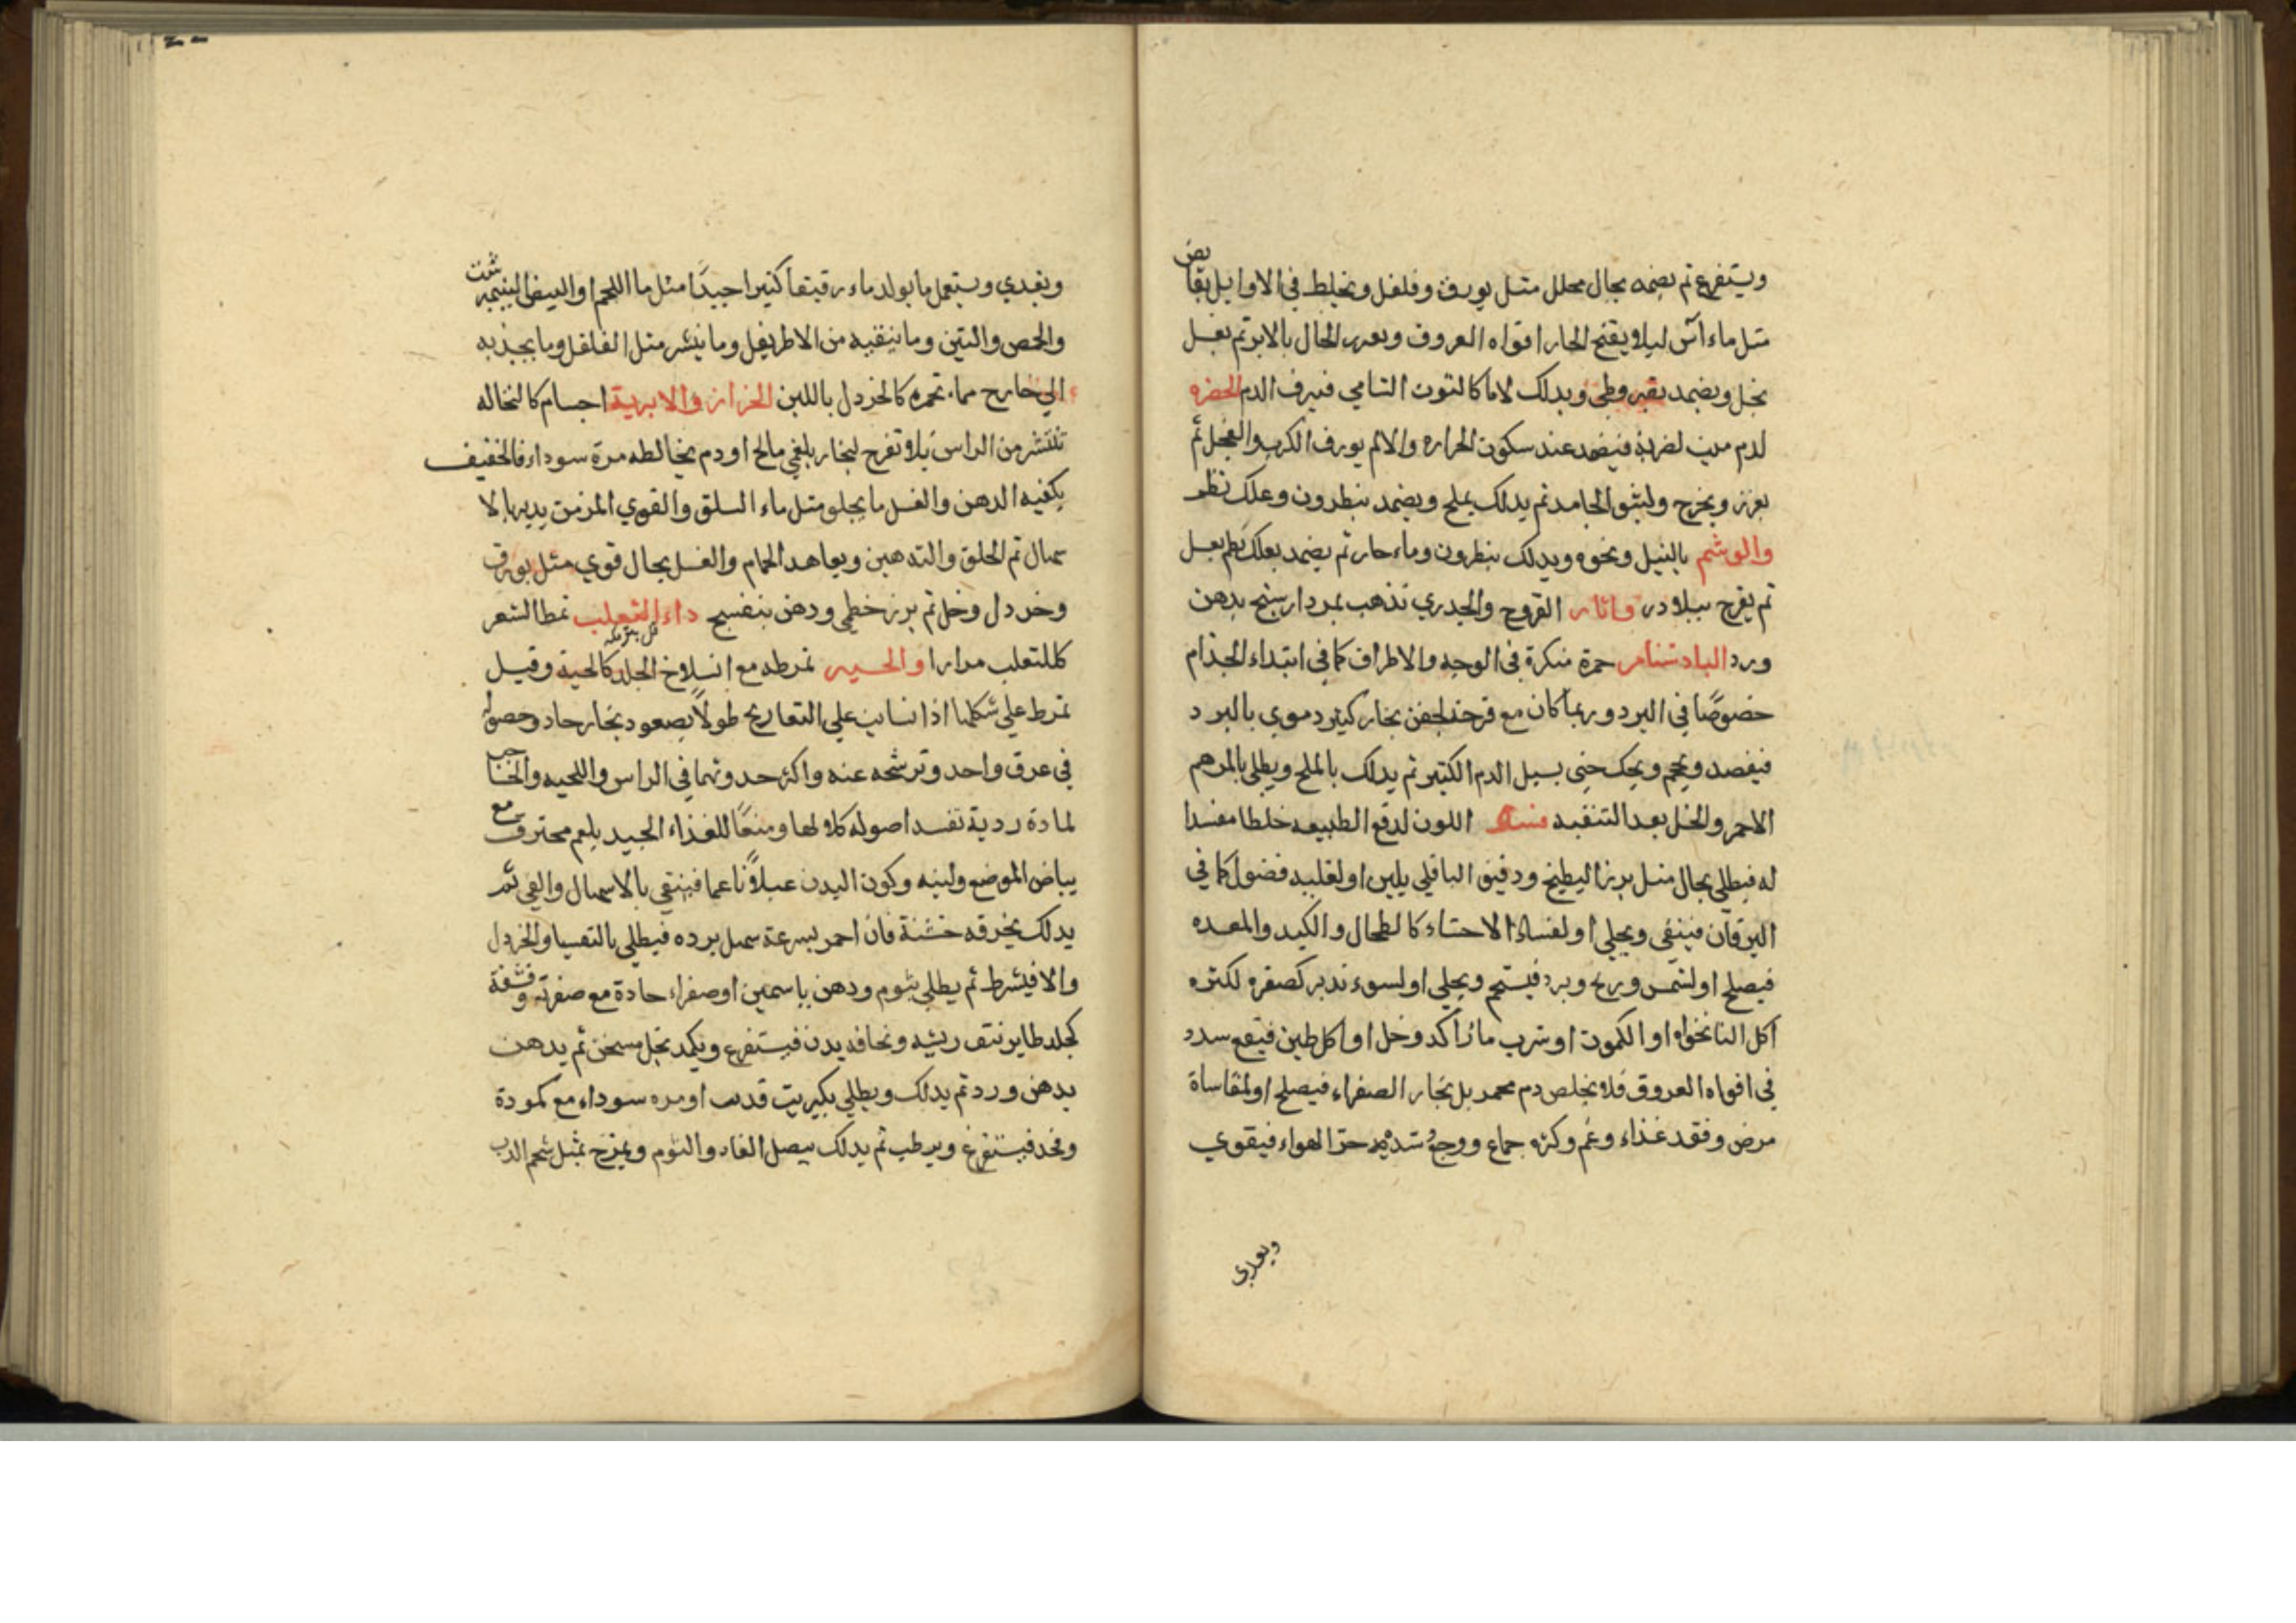 ويستفرغ ثم يضمد بجال محلل مثل بورق وفلفل ويخلط في الاوايل بقابض
مثل ماء آس ليلا ويفتح الحار افواه العروق الحال بالابر ثم يغسل
بخل ويضمد بقيروطي ويدلك كالتوت الشامي فيرف الدم الخضره
لدم ميت لضربة فيضمد عند سكون الحراره والالم بورق الكرب والفجل ثم
يغرز ويخرج الجامد ثم يدلك بملح ويضمد بنطرون وعلك
والوشم بالنيل ونحوه ويدلك بنطرون وماء حار ثم يضمد بعلك ثم يغسل
ثم يقرح ببلادر واثار القروح والجدري تذهب بمردارسنج بدهن
ورد البادشنام حمرة منكرة في الوجه والاطراف كما في ابتداء الجذام
خصوصًا في البرد وربما كان مع قرحة لحقن بخار كثير دموي بالبرد
فيفصد ويحجم ويحك حتى يسيل الدم الكثير ثم يدلك بالملح ويطلى بالمرهم
الاحمر والخل بعد التنقيه فساد اللون لدفع الطبيعه خلطا مفسدا
له فيطلى بجال مثل بزر البطيخ ودقيق الباقلي بلبن او لغلبة فضول كما في
اليرقان فينقى ويجلى او لفساد الاحشاء كالطحال والكبد والمعده
فيصلح او لشمس وريح وبرد فيستحم ويجلى او لسوء تدبر كصفره لكثره
اكل النانخواه او الكمون او شرب ما راكد وخل او اكل طين فيقع سدد
في افواه العروق فلا يخلص دم محمر بل بخار الصفراء فيصلح او لمقاساة
مرض وفقد غذاء وغم وكثره جماع ووجع شديد حر الهواء فيقوي
ويغدي
ويغدي ويستعمل ما يولد ماء رقيقا كثيرا جيدًا مثل ما اللحم والبيض النيمبرشت
والحمص والتين وما ينقيه من الاطريفل وما ينشر مثل الفلفل وما يجذبه
الي خارج مما تحمره كالخردل باللبن الحزاز والابرية اجسام كالنخاله
تنتشر من الراس بلا تقرح لبخار بلغمي مالح او دم يخالطه مرة سوداء فالخفيف
يكفيه الدهن والغسل ما يجلو مثل ماء السلق والقوي المزمن
ثم الحلق والتدهين ويعاهد الحمام والغسل بجال قوي مثل بورق
وخردل وخل ثم بزر خطمي ودهن بنفسج داء الثعلب تمرط الشعر
كما للثعلب مرارا والحيه تمرطه مع انسلاخ الجلد كالحية وقيل
تمرط علي شكلها اذا انسابت علي التعاريج طولاً بصعود بخار حاد وحصوله
في عرق واحد وترشحه عنه واكثر حدوثهما في الراس واللحيه والحاجب
لمادة ردية تفسد اصوله كلا لها ومنعًا للغذاء الجيد بلغم محترق مع
بياض الموضع ولينه وكون البدن عبلاً ناعما فينقي بالاسهال والقي ثم
يدلك بخرقه خشنة فان احمر بسرعة سهل برده فيطلي بالتفسيا والخردل
والا فيشرط ثم يطلي بثوم ودهن ياسمين او صفراء حادة مع صفرته وقشفة
كجلد طاير نتف ريشه ونحافه بدن فيستفرغ ويكمد بخل مسخن ثم يدهن
بدهن ورد ثم يدلك ويطلي بكبريت او مره سوداء مع كمودة
فيستفرغ ويرطب ثم يدلك ببصل الفار والثوم ويمزخ بمثل شحم الدب